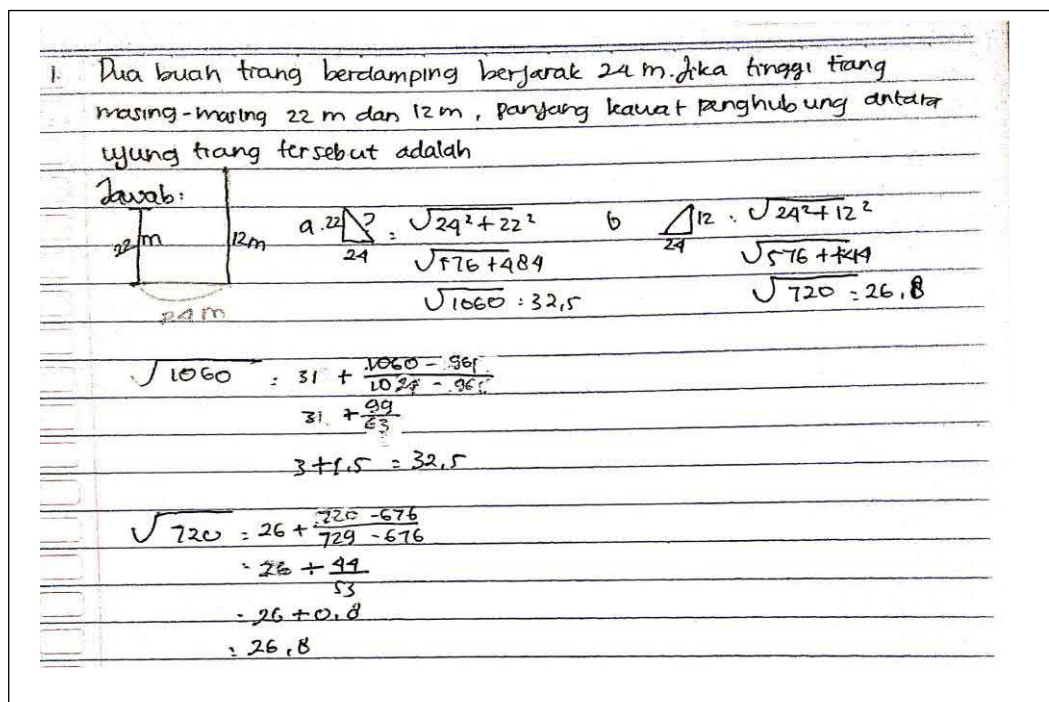 1. Dua buah tiang berdamping berjarak 24 m. Jika tinggi tiang
masing-masing 22 m dan 12 m, panjang kawat penghubung antara
ujung tiang tersebut adalah
Jawab:
22 m 12m
24 m
a. 22 ? = √24²+22²
24
√576+484
√1060 : 32,5
b 12 : √24²+12²
24
√576+144
√720 = 26,8
√1060 = 31 + 1060 - 961 / 1024 - 961
31 + 99/63
3+1,5 = 32,5
√720 = 26 + 720 - 676 / 729 - 676
= 26 + 44/53
= 26 + 0,8
= 26,8